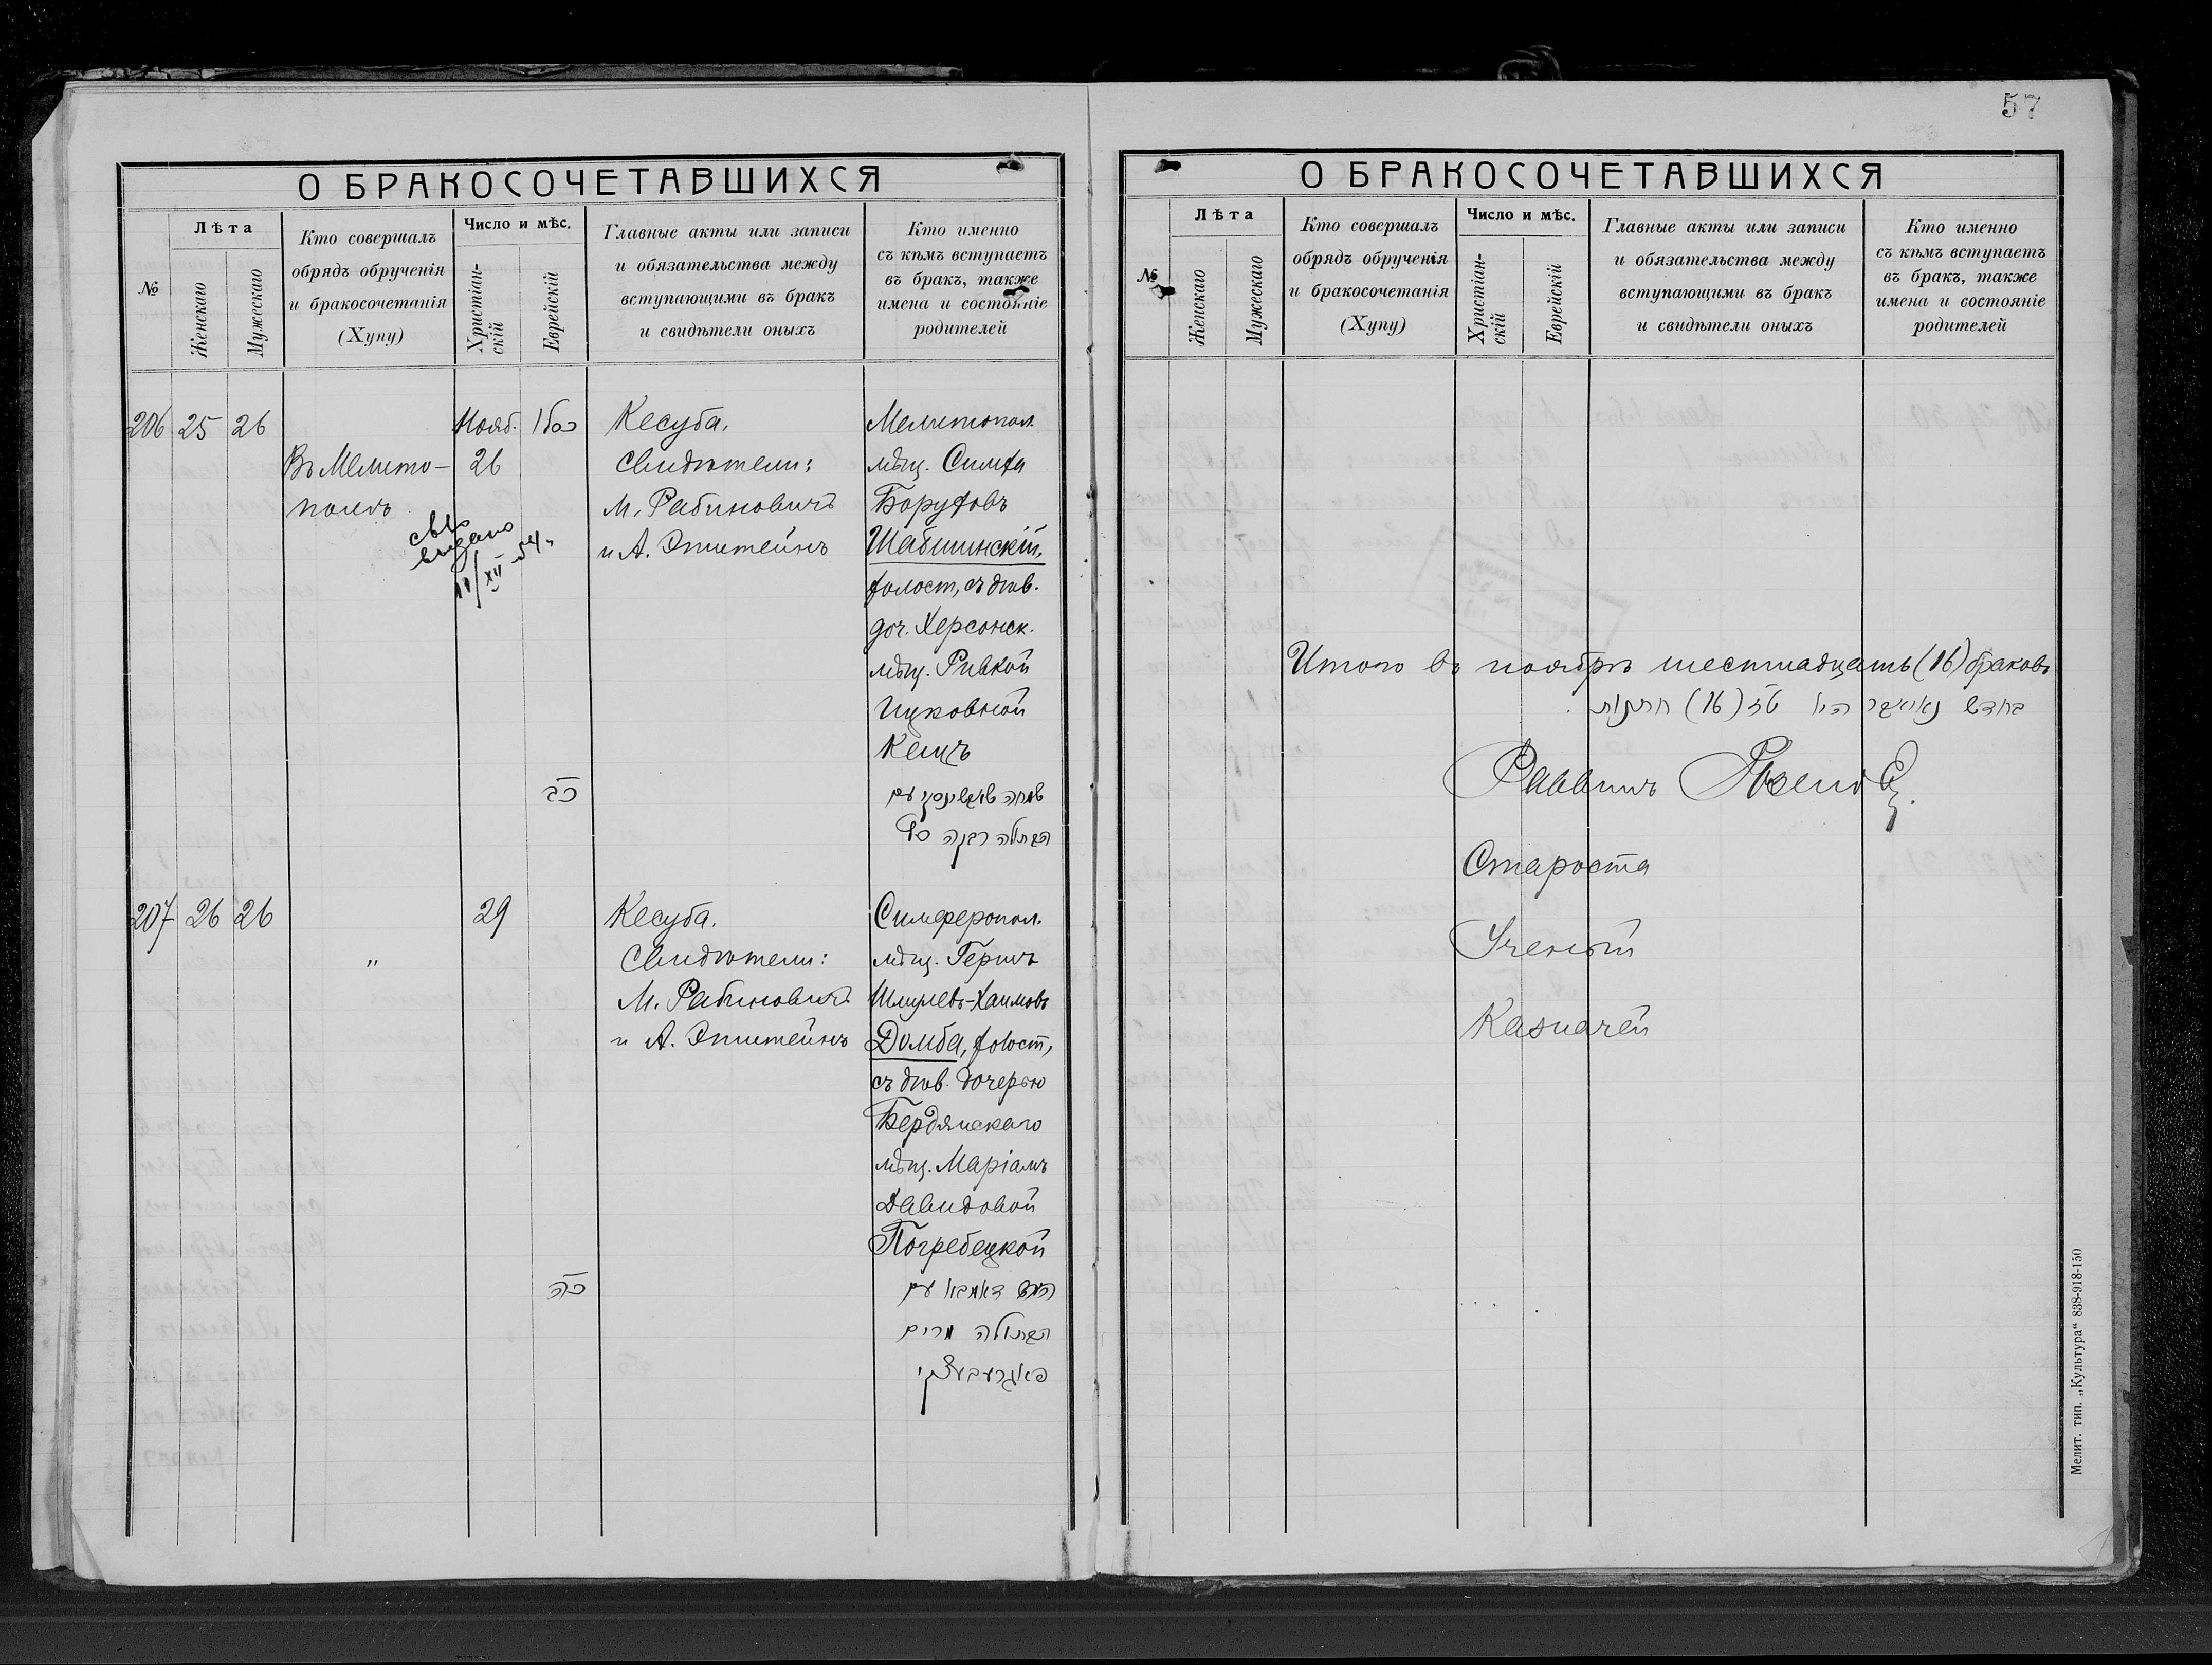 57
О БРАКОСОЧЕТАВШИХСЯ
№
Лѣта
Женскаго
Мужескаго
Кто совершалъ
обрядъ обрученія
и бракосочетанія
(Хупу)
Число и мѣс.
Христіан-
скій
Еврейскій
Главные акты или записи
и обязательства между
вступающими въ бракъ
и свидѣтели оныхъ
Кто именно
съ кѣмъ вступаетъ
въ бракъ, также
имена и состояніе
родителей
206 25 26
Въ Мелито-
полѣ
Нояб.
26
כג
Кесуба.
Свидѣтели:
М. Рабиновичъ
и А. Эпштейнъ
св-во
выдано
11/XII-54 г.
Мелитопол.
мѣщ. Симха
Боруховъ
Шабшинскій,
холост, съ дѣв.
доч. Херсонск.
мѣщ. Ривкой
Ицковной
Кацъ
שמחה שאבשינסקי עם
הבתולה רבקה כץ
207 26 26
"
29
כה
Кесуба.
Свидѣтели:
М. Рабиновичъ
и А. Эпштейнъ
Симферопол.
мѣщ. Гершъ
Шмулевъ-Хаимовъ
Домба, холост,
съ дѣв. дочерью
Бердянскаго
мѣщ. Маріамъ
Давидовой
Погребецкой
הירש דאמבא עם
הבתולה מרים
פאגרעבעצקי
О БРАКОСОЧЕТАВШИХСЯ
№
Лѣта
Женскаго
Мужескаго
Кто совершалъ
обрядъ обрученія
и бракосочетанія
(Хупу)
Число и мѣс.
Христіан-
скій
Еврейскій
Главные акты или записи
и обязательства между
вступающими въ бракъ
и свидѣтели оныхъ
Кто именно
съ кѣмъ вступаетъ
въ бракъ, также
имена и состояніе
родителей
Итого въ ноябрѣ шестнадцать (16) браковъ
בחדש נאיאבר היו טז (16) חתונות.
Раввинъ
Староста
Ученый
Казначей
Мелит. тип. „Культура“ 838-918-150